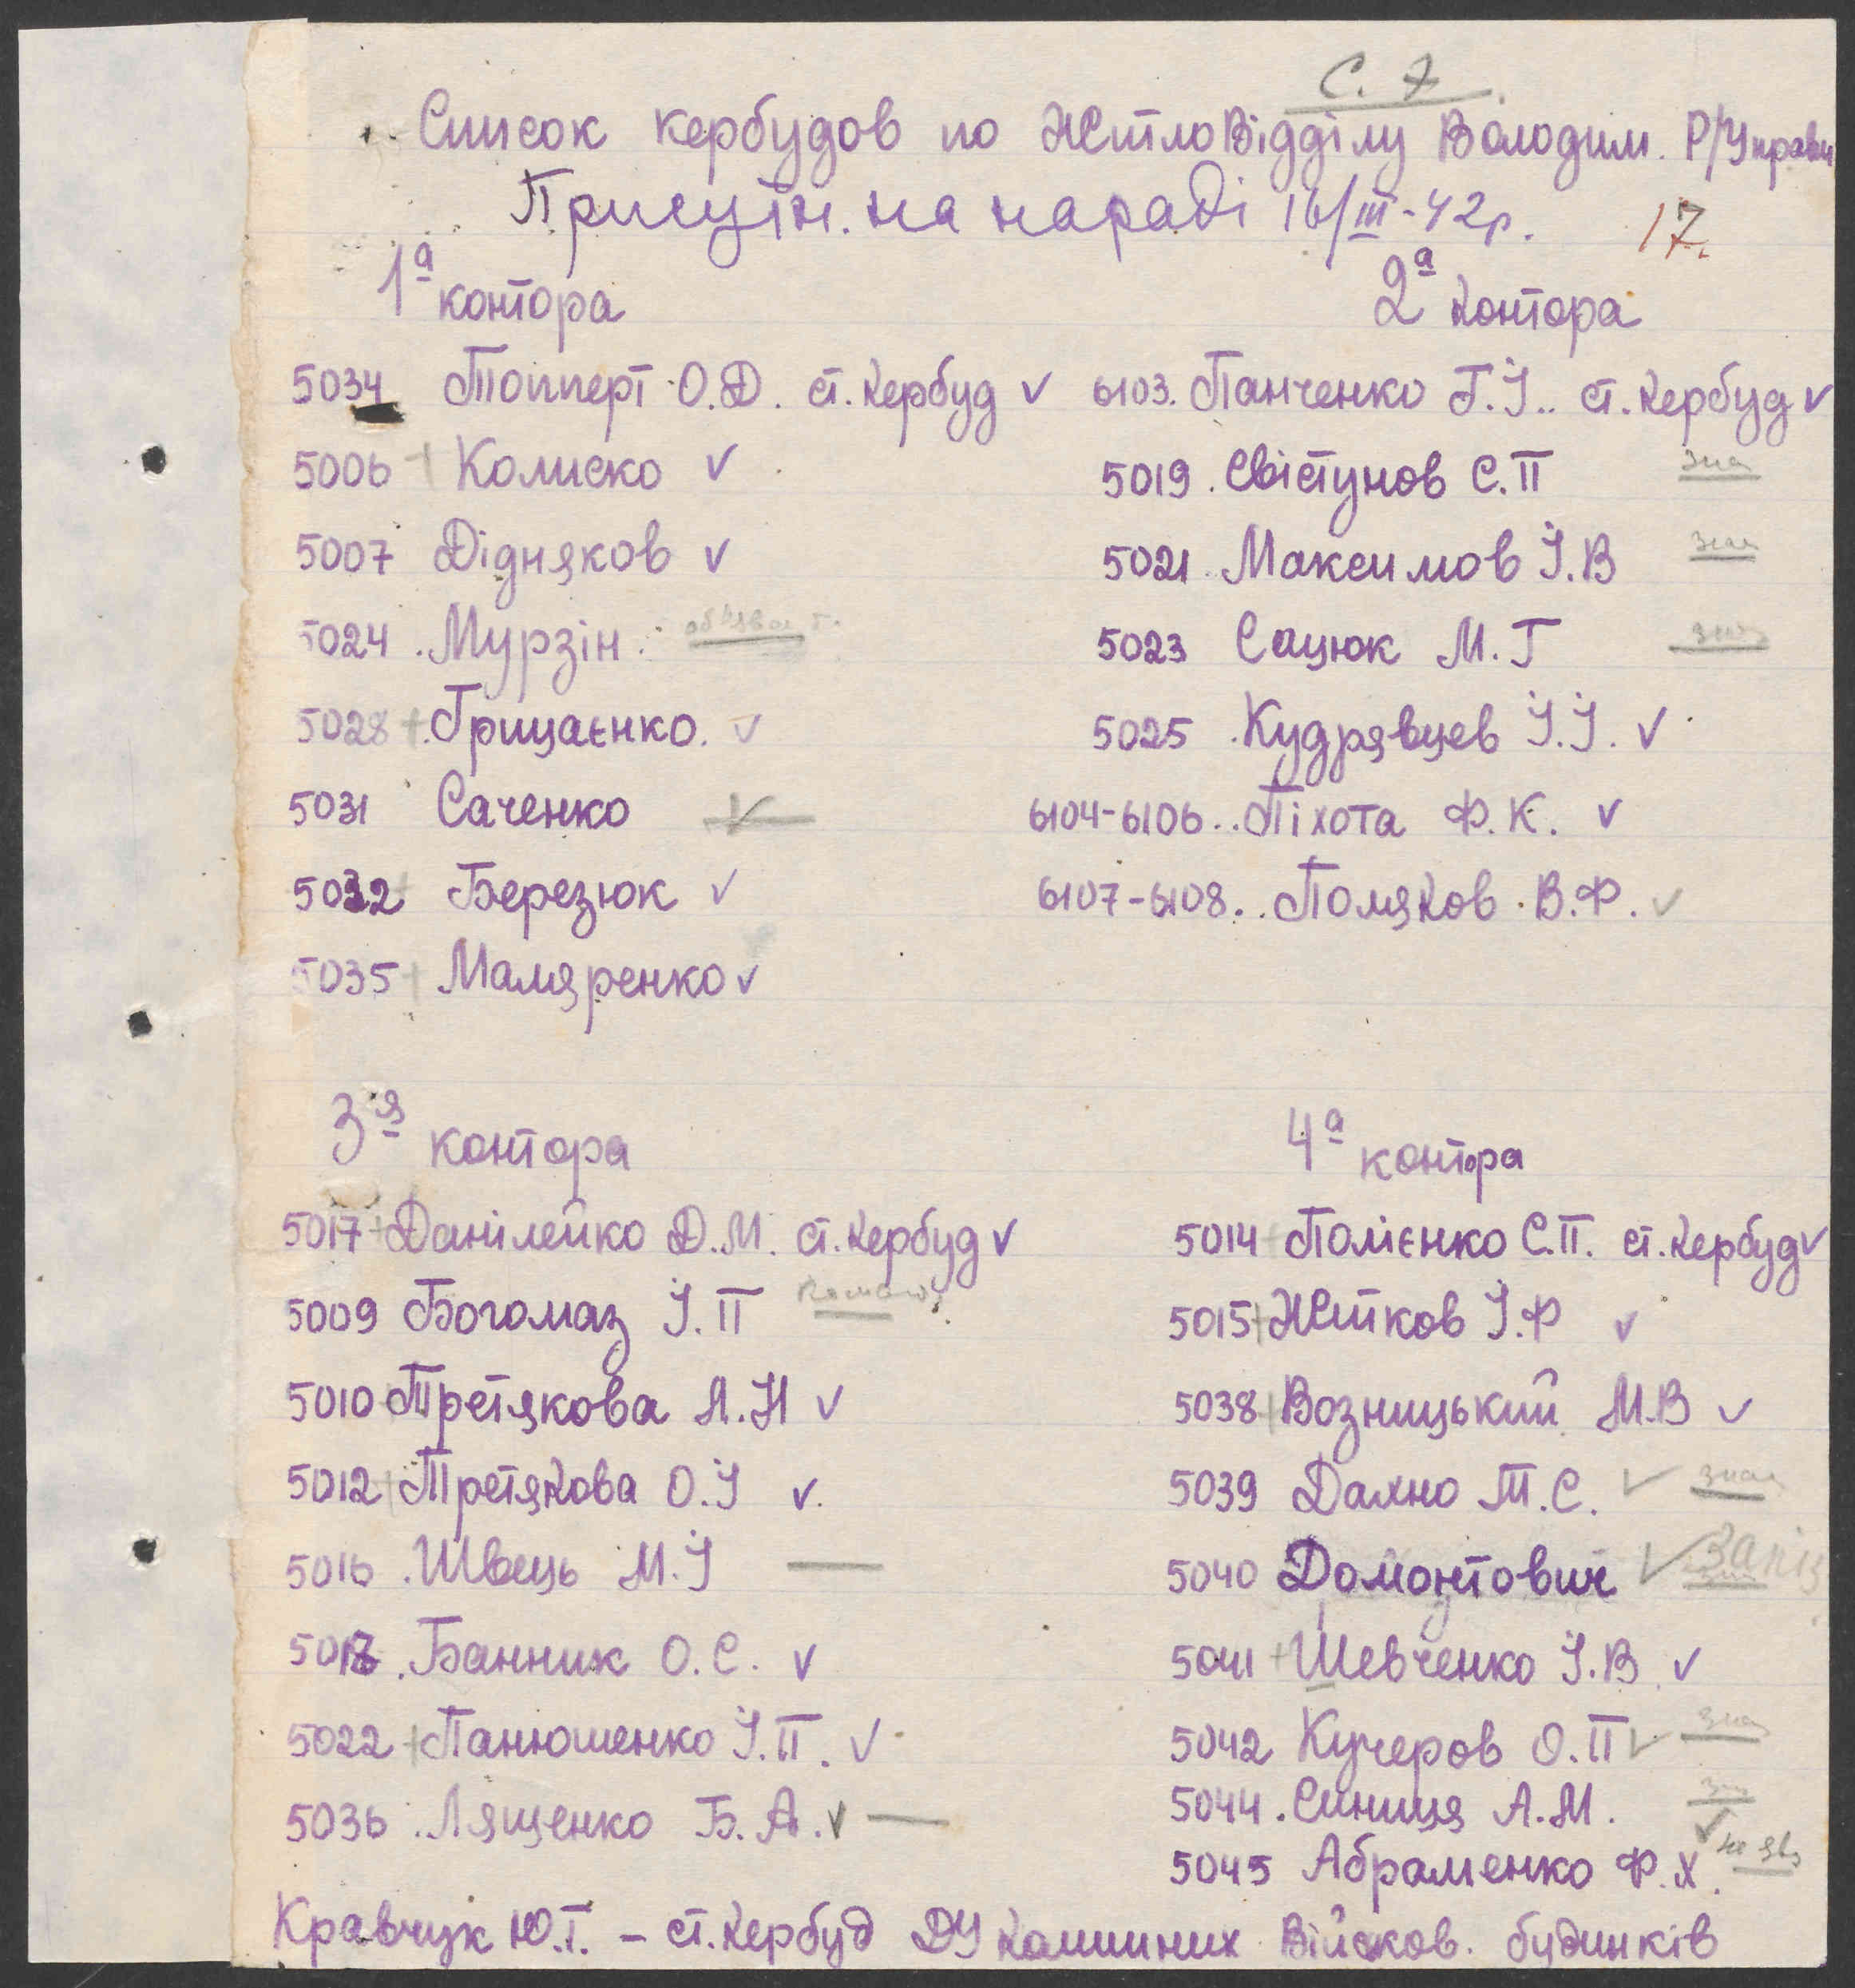 С. 7
Список кербудов по ЖитлоВідділу Володим. Р/Управи
Присутн. на нараді 16/III-42р. 17.
1а контора
5034 Топперт О.Д. ст. кербуд v
5006 Колиско v
5007 Дідняков v
5024 . Мурзін .
5028 + Грицаєнко. v
5031 Саченко v
5032 + Березюк v
5035 + Маляренко v
2а контора
6103. Панченко Г.І.. ст. кербуд v
5019 . Свістунов С.П зная
5021 . Максимов І.В зная
5023 Сацюк М.Г
5025 . Кудрявцев І.І. v
6104-6106.. Піхота Ф.К. v
6107-6108.. Поляков В.Ф. v
3я контора
5017 + Данілейко Д.М. ст. кербуд v
5009 Богомаз І.П
5010 Третякова А.Н v
5012 + Третякова О.І v.
5016 . Швець М.І —
5018 . Банник О.С. v
5022 + Панюшенко І.П. v
5036 . Лященко Б.А. v —
4а контора
5014 Полієнко С.П. ст. кербуд v
5015 + Жийков І.Ф v
5038 Возницький М.В v
5039 Дахно Т.С. v зная
5040 Домонтович v Запіз
5041 + Шевченко І.В. v
5042 Кучеров О.П v зная
5044 . Синиця А.М.
5045 Абраменко Ф.Х. v не яв
Кравчук Ю.Г. - ст. кербуд ДУ колишних Військов. будинків